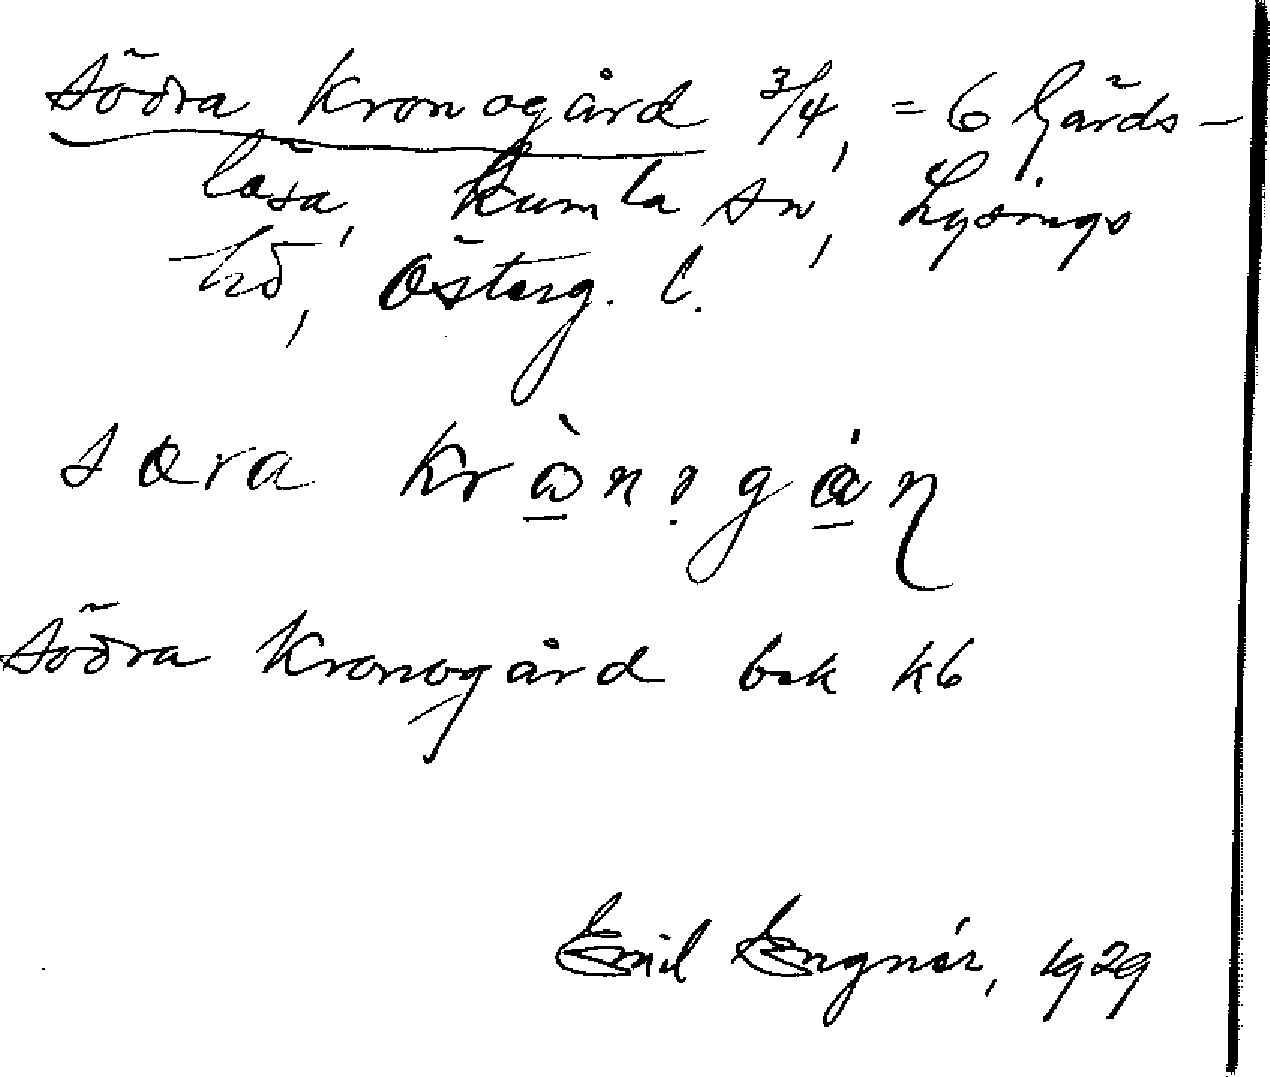 Södra Kronogård 3/4, = 6 Gärds-
lösa, Kumla sn, Lysings
hd, Österg. l.
særa kròn
Södra Kronogård bsk kb
Emil Engnér, 1929